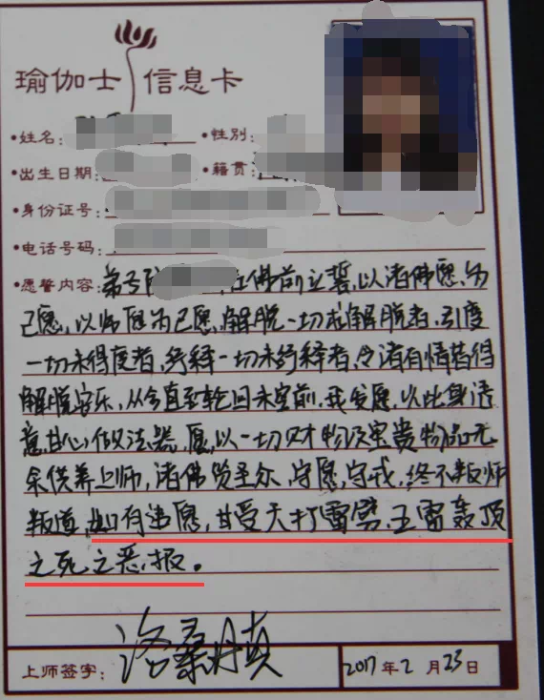 瑜伽士 信息卡
•姓名: •性別:
•出生日期: •籍贯:
•身份证号:
•电话号码:
•愿誓内容: 弟子 在佛前立誓,以诸佛愿为
己愿,以师愿为己愿,解脱一切求解脱者,引度
一切未得度者,舒释一切未舒释者,令诸有情皆得
解脱安乐,从今直至轮回未空前,我发愿,以此身语
意甘心做法器,愿以一切财物及宝贵物品无
余供养上师,诸佛 圣尔,守愿,守戒,终不叛师
叛道,如有违愿,甘受天打雷劈,五雷轰顶
之死之恶报。
上师签字: 洛桑丹真 2017年2月23日